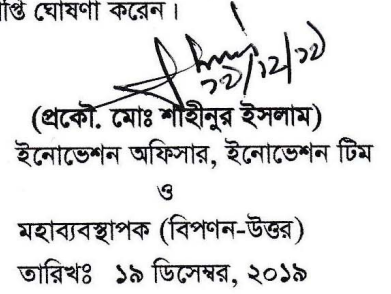 ঘোষণা করেন।
১৯/১২/১৯
(প্রকৌ. মোঃ শাহীনুর ইসলাম)
ইনোভেশন অফিসার, ইনোভেশন টিম
ও
মহাব্যবস্থাপক (বিপণন-উত্তর)
তারিখঃ ১৯ ডিসেম্বর, ২০১৯